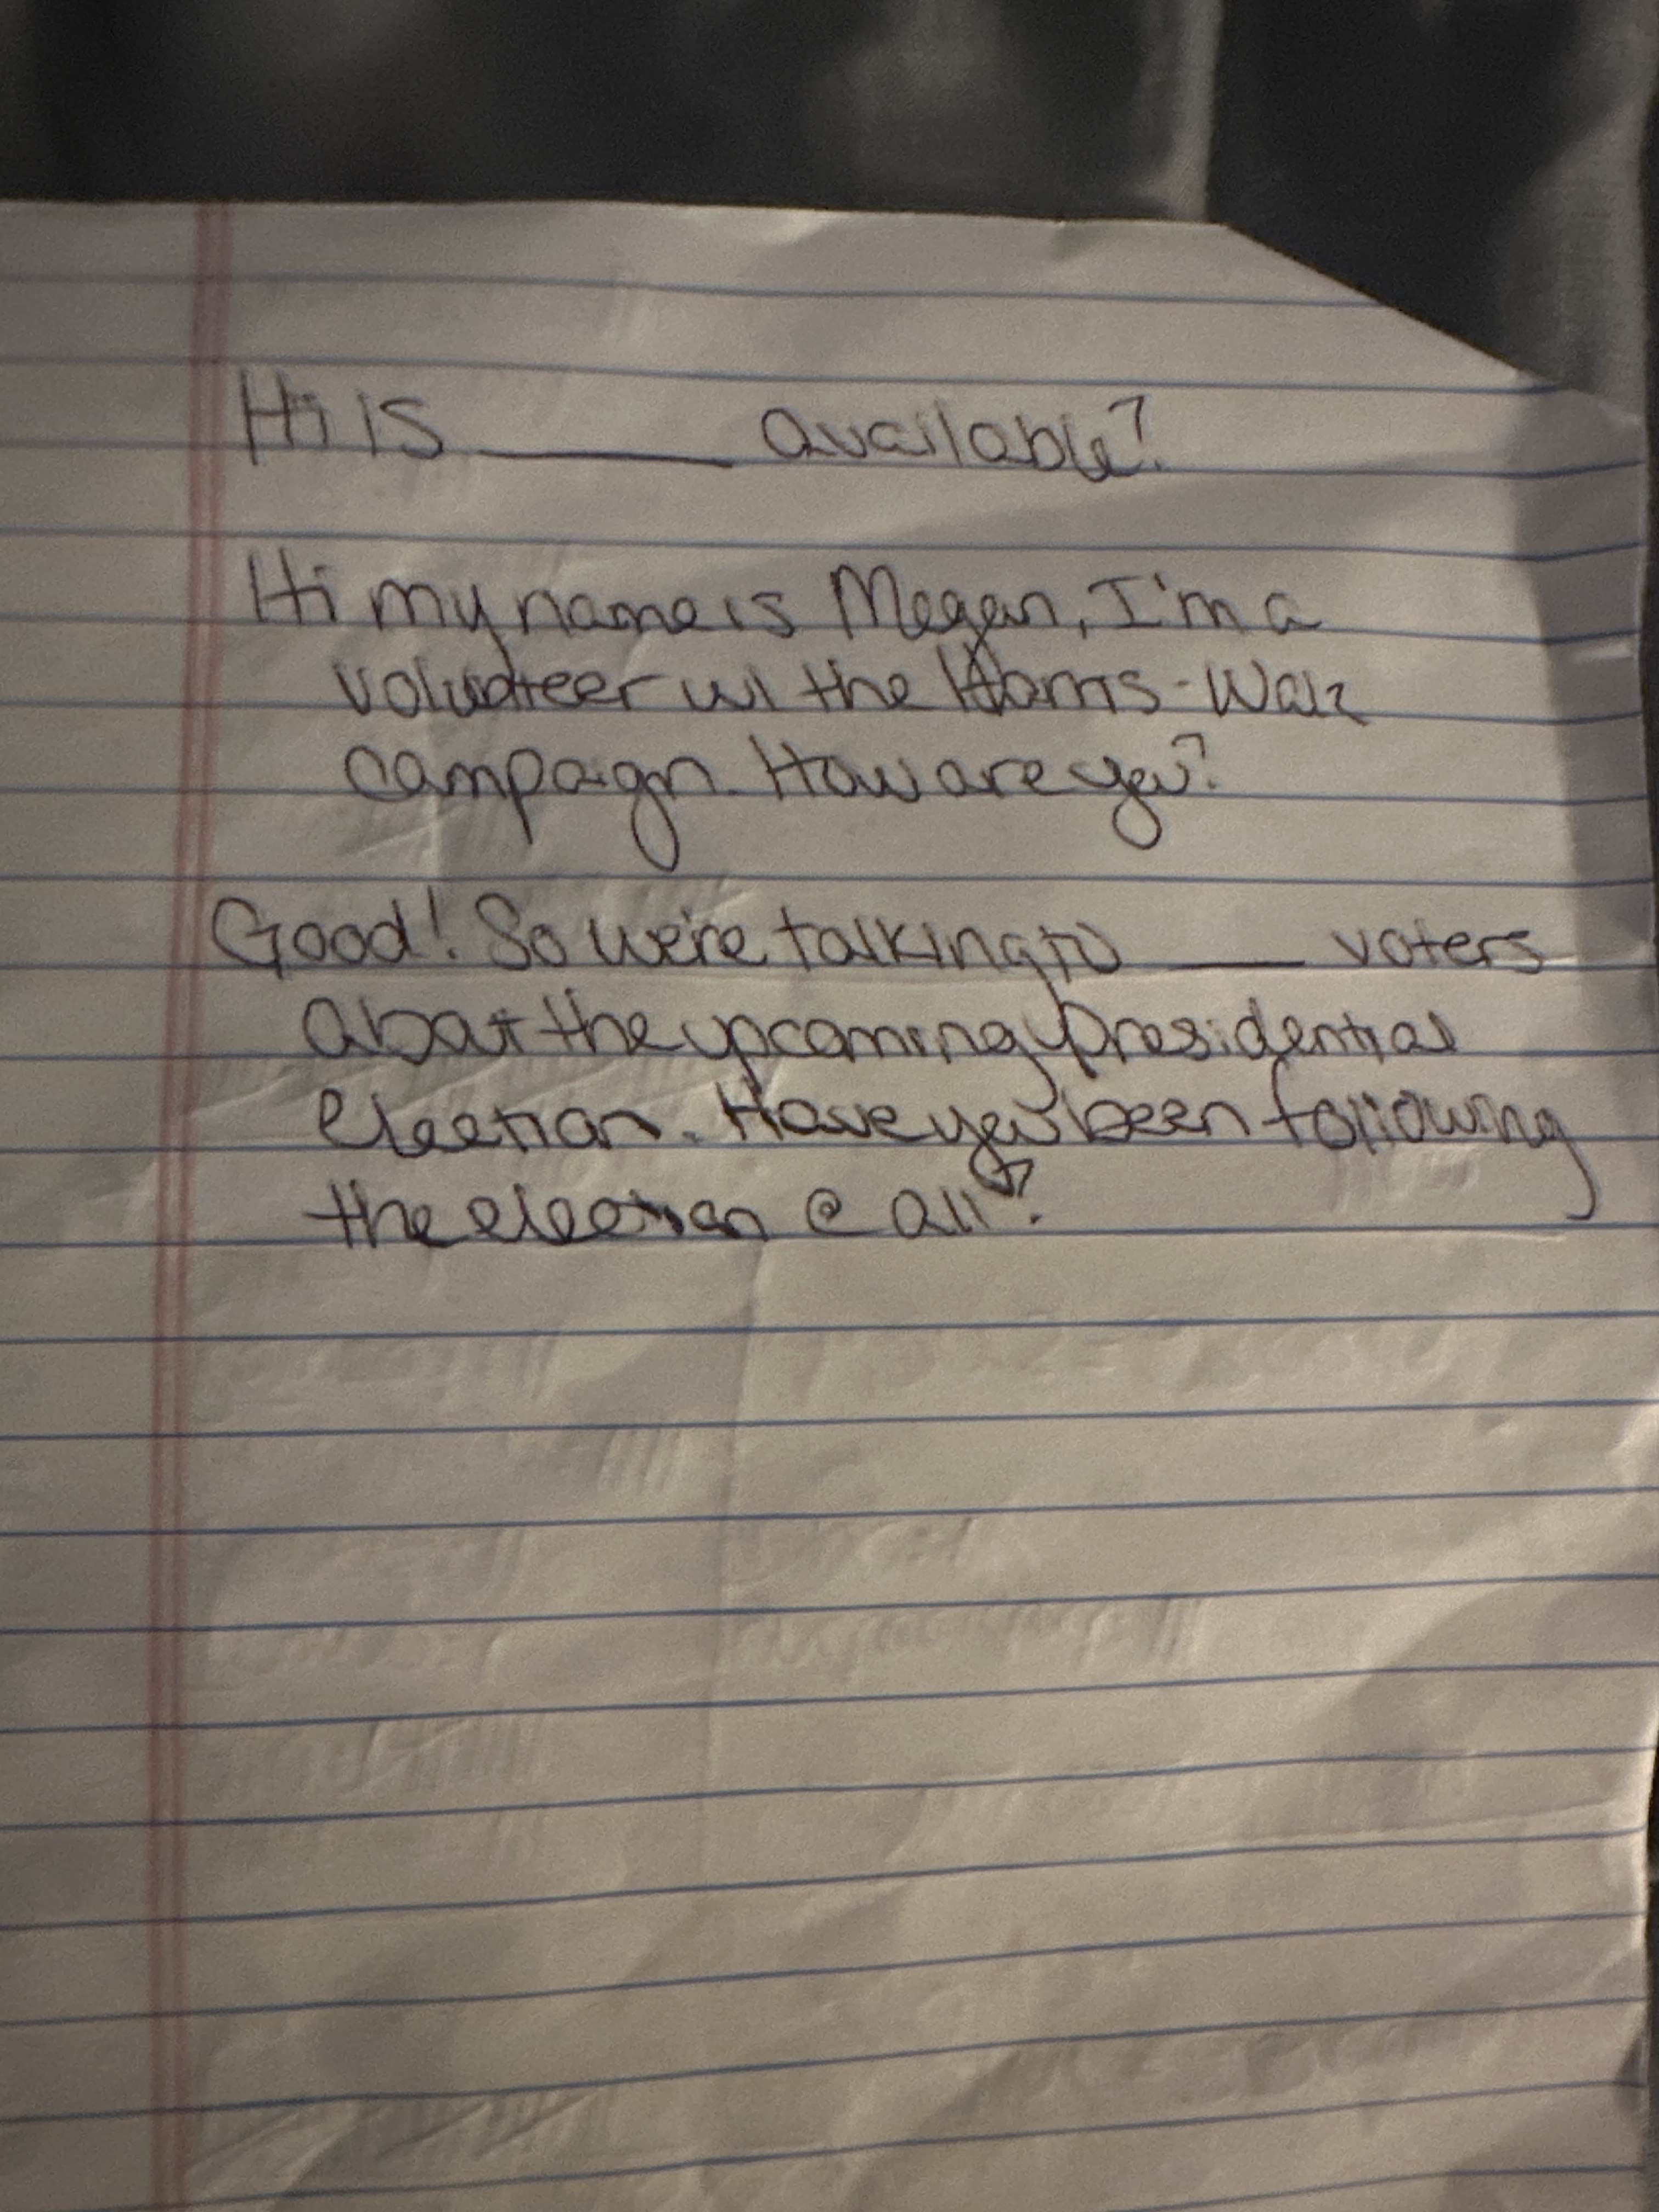 Hi is _____ available?
Hi my name is Megan, I'm a
volunteer w/ the Harris-Walz
campaign. How are you?
Good! So we're talking to ___ voters
about the upcoming presidential
election. Have you been following
the election @ all?